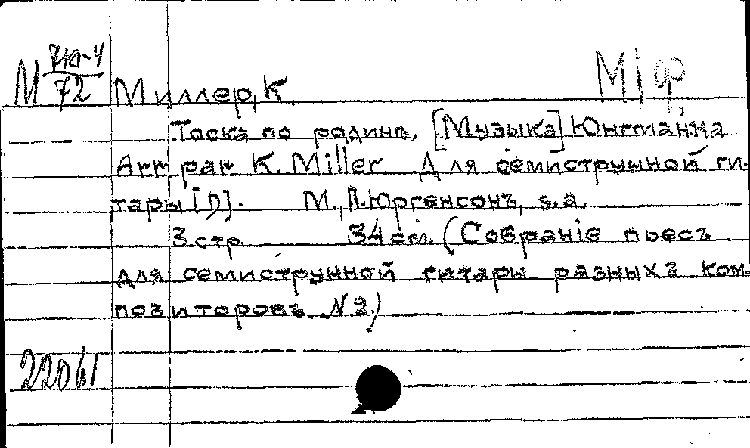 М 710-4/72 Миллер, К. М I ф
Тоска по родинѣ, [Музыка] Юнгманна
Arr par K. Miller Для семиструнной ги-
тары [ ]. М., П. Юргенсонъ, s.a.
3 стр 34 см. (Собранiе пьесъ
для семиструнной гитары разныхъ ком-
позиторовъ №2)
22061